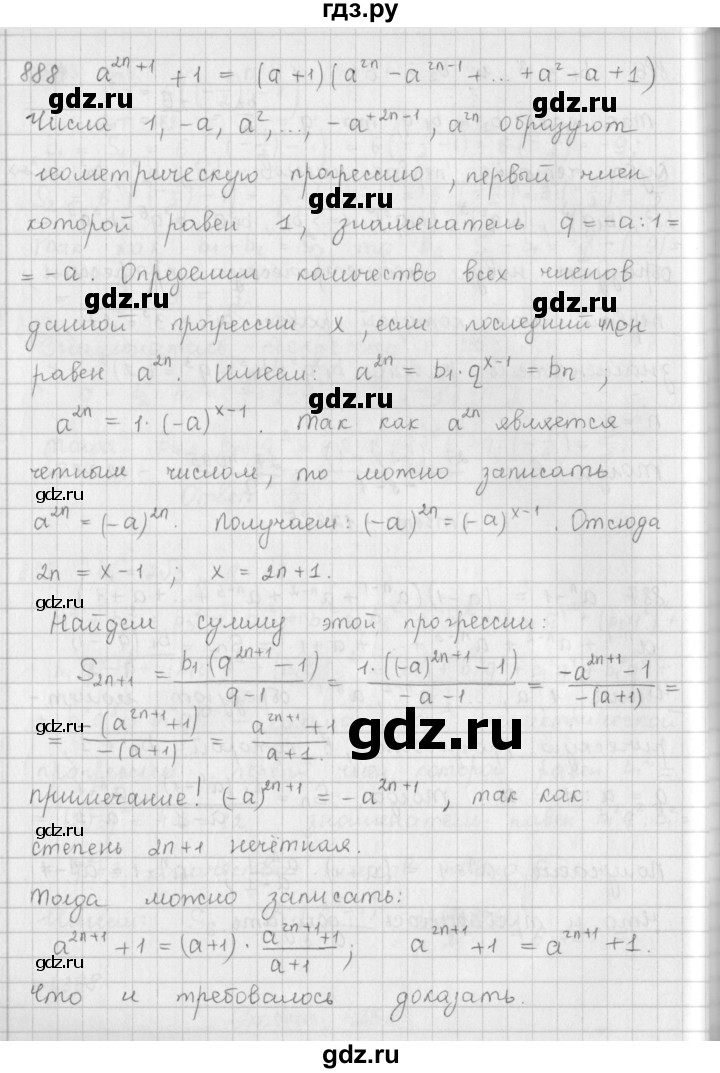 гдз.ру
888 a^{2n+1} + 1 = (a+1)(a^{2n} - a^{2n-1} + ... + a² - a + 1)
gdz.ru gdz.ru
Числа 1, -a, a², ..., -a^{+2n-1}, a^{2n} образуют
геометрическую прогрессию, первый член
gdz.ru gdz.ru
которой равен 1, знаменатель q = -a : 1 =
= -a. Определим количество всех членов
gdz.ru gdz.ru
данной прогрессии x, если последний член
равен a^{2n}. Имеем: a^{2n} = b₁ · q^{x-1} = bn,
gdz.ru gdz.ru
a^{2n} = 1 · (-a)^{x-1}. Так как a^{2n} является
четным числом, то можно записать
gdz.ru
a^{2n} = (-a)^{2n}. Получаем: (-a)^{2n} = (-a)^{x-1}. Отсюда
2n = x-1; x = 2n+1.
gdz.ru
Найдем сумму этой прогрессии:
S_{2n+1} = b₁·(q^{2n+1} - 1) / (q-1) = 1·((-a)^{2n+1} - 1) / (-a-1) = (-a^{2n+1} - 1) / (-(a+1)) =
gdz.ru
= -(a^{2n+1}+1) / (-(a+1)) = (a^{2n+1}+1) / (a+1).
gdz.ru
примечание! (-a)^{2n+1} = -a^{2n+1}, так как
gdz.ru
степень 2n+1 нечётная.
Тогда можно записать:
gdz.ru
a^{2n+1} + 1 = (a+1) · (a^{2n+1}+1) / (a+1); a^{2n+1} + 1 = a^{2n+1} + 1.
gdz.ru
Что и требовалось доказать.
gdz.ru